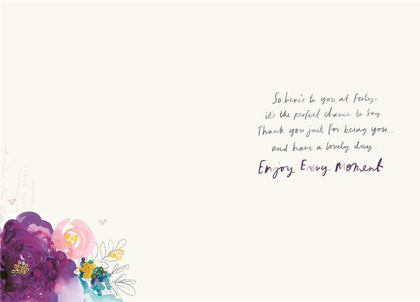 So here's to you at forty-
it's the perfect chance to say
Thank you just for being you...
and have a lovely day.
Enjoy Every Moment